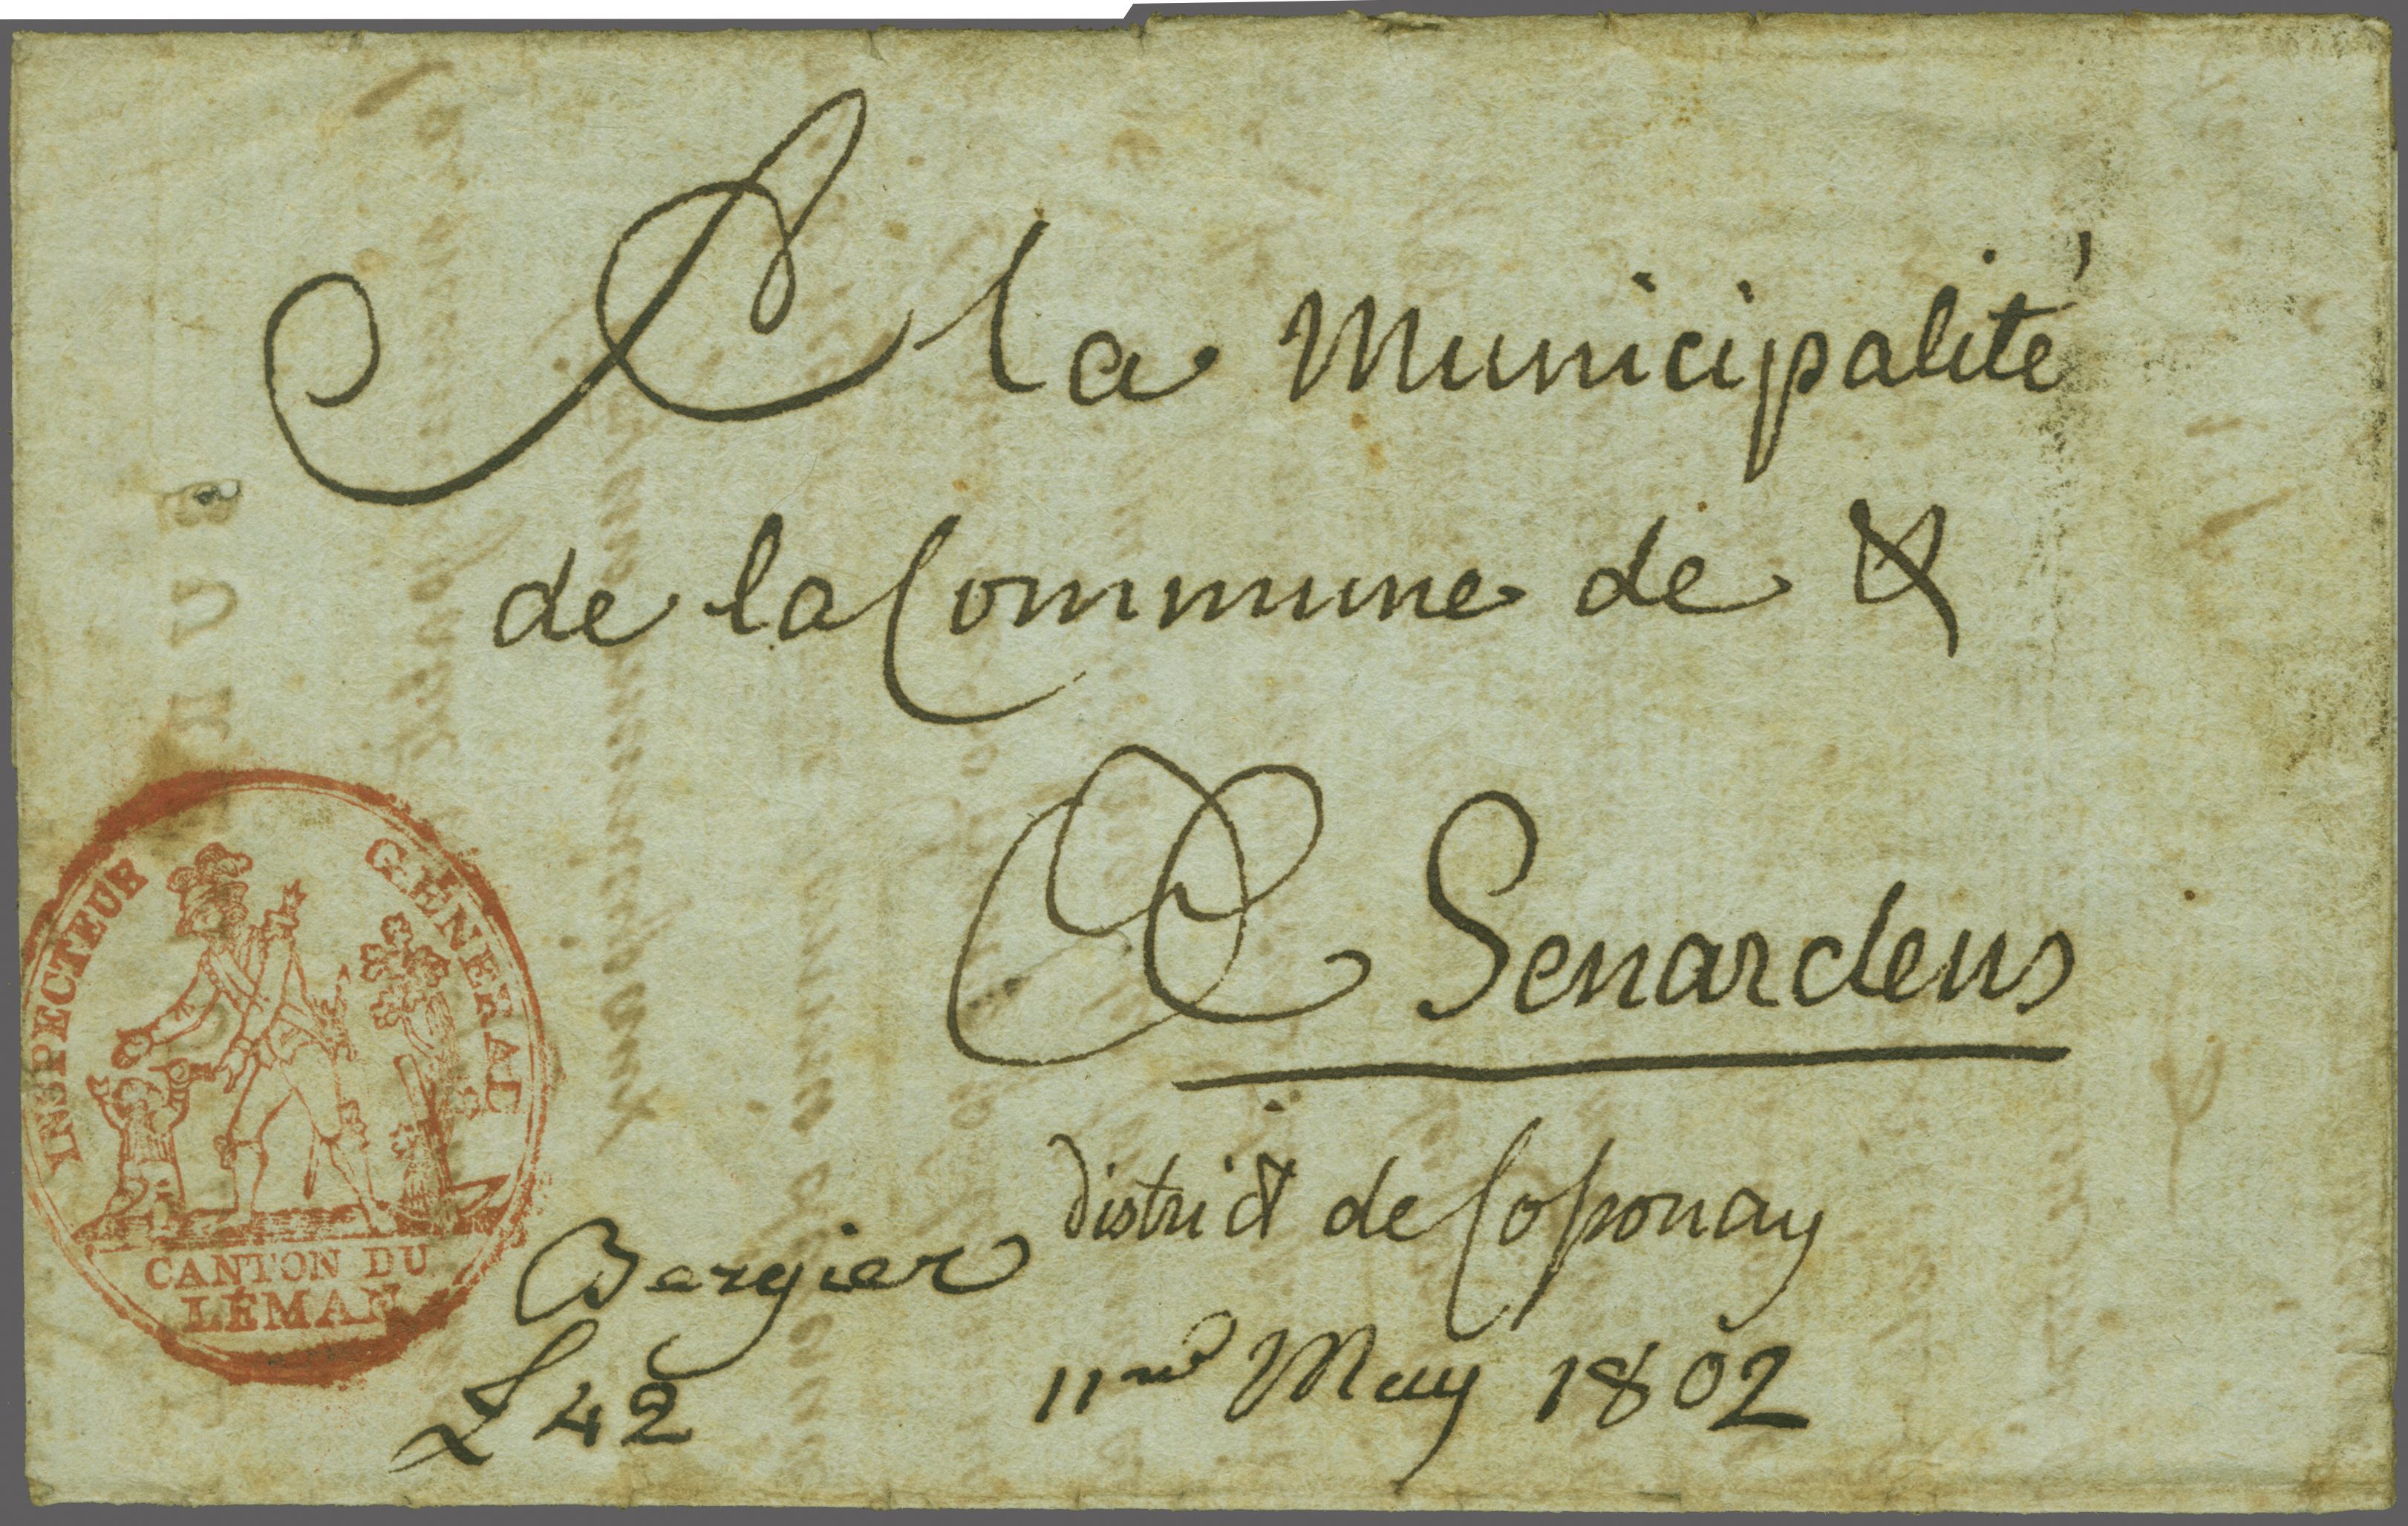 A la Municipalité
de la Commune de &
Senardens
district de Cossonay
11me May 1802
Bergier
L 42
INSPECTEUR GÉNÉRAL
CANTON DU
LÉMAN